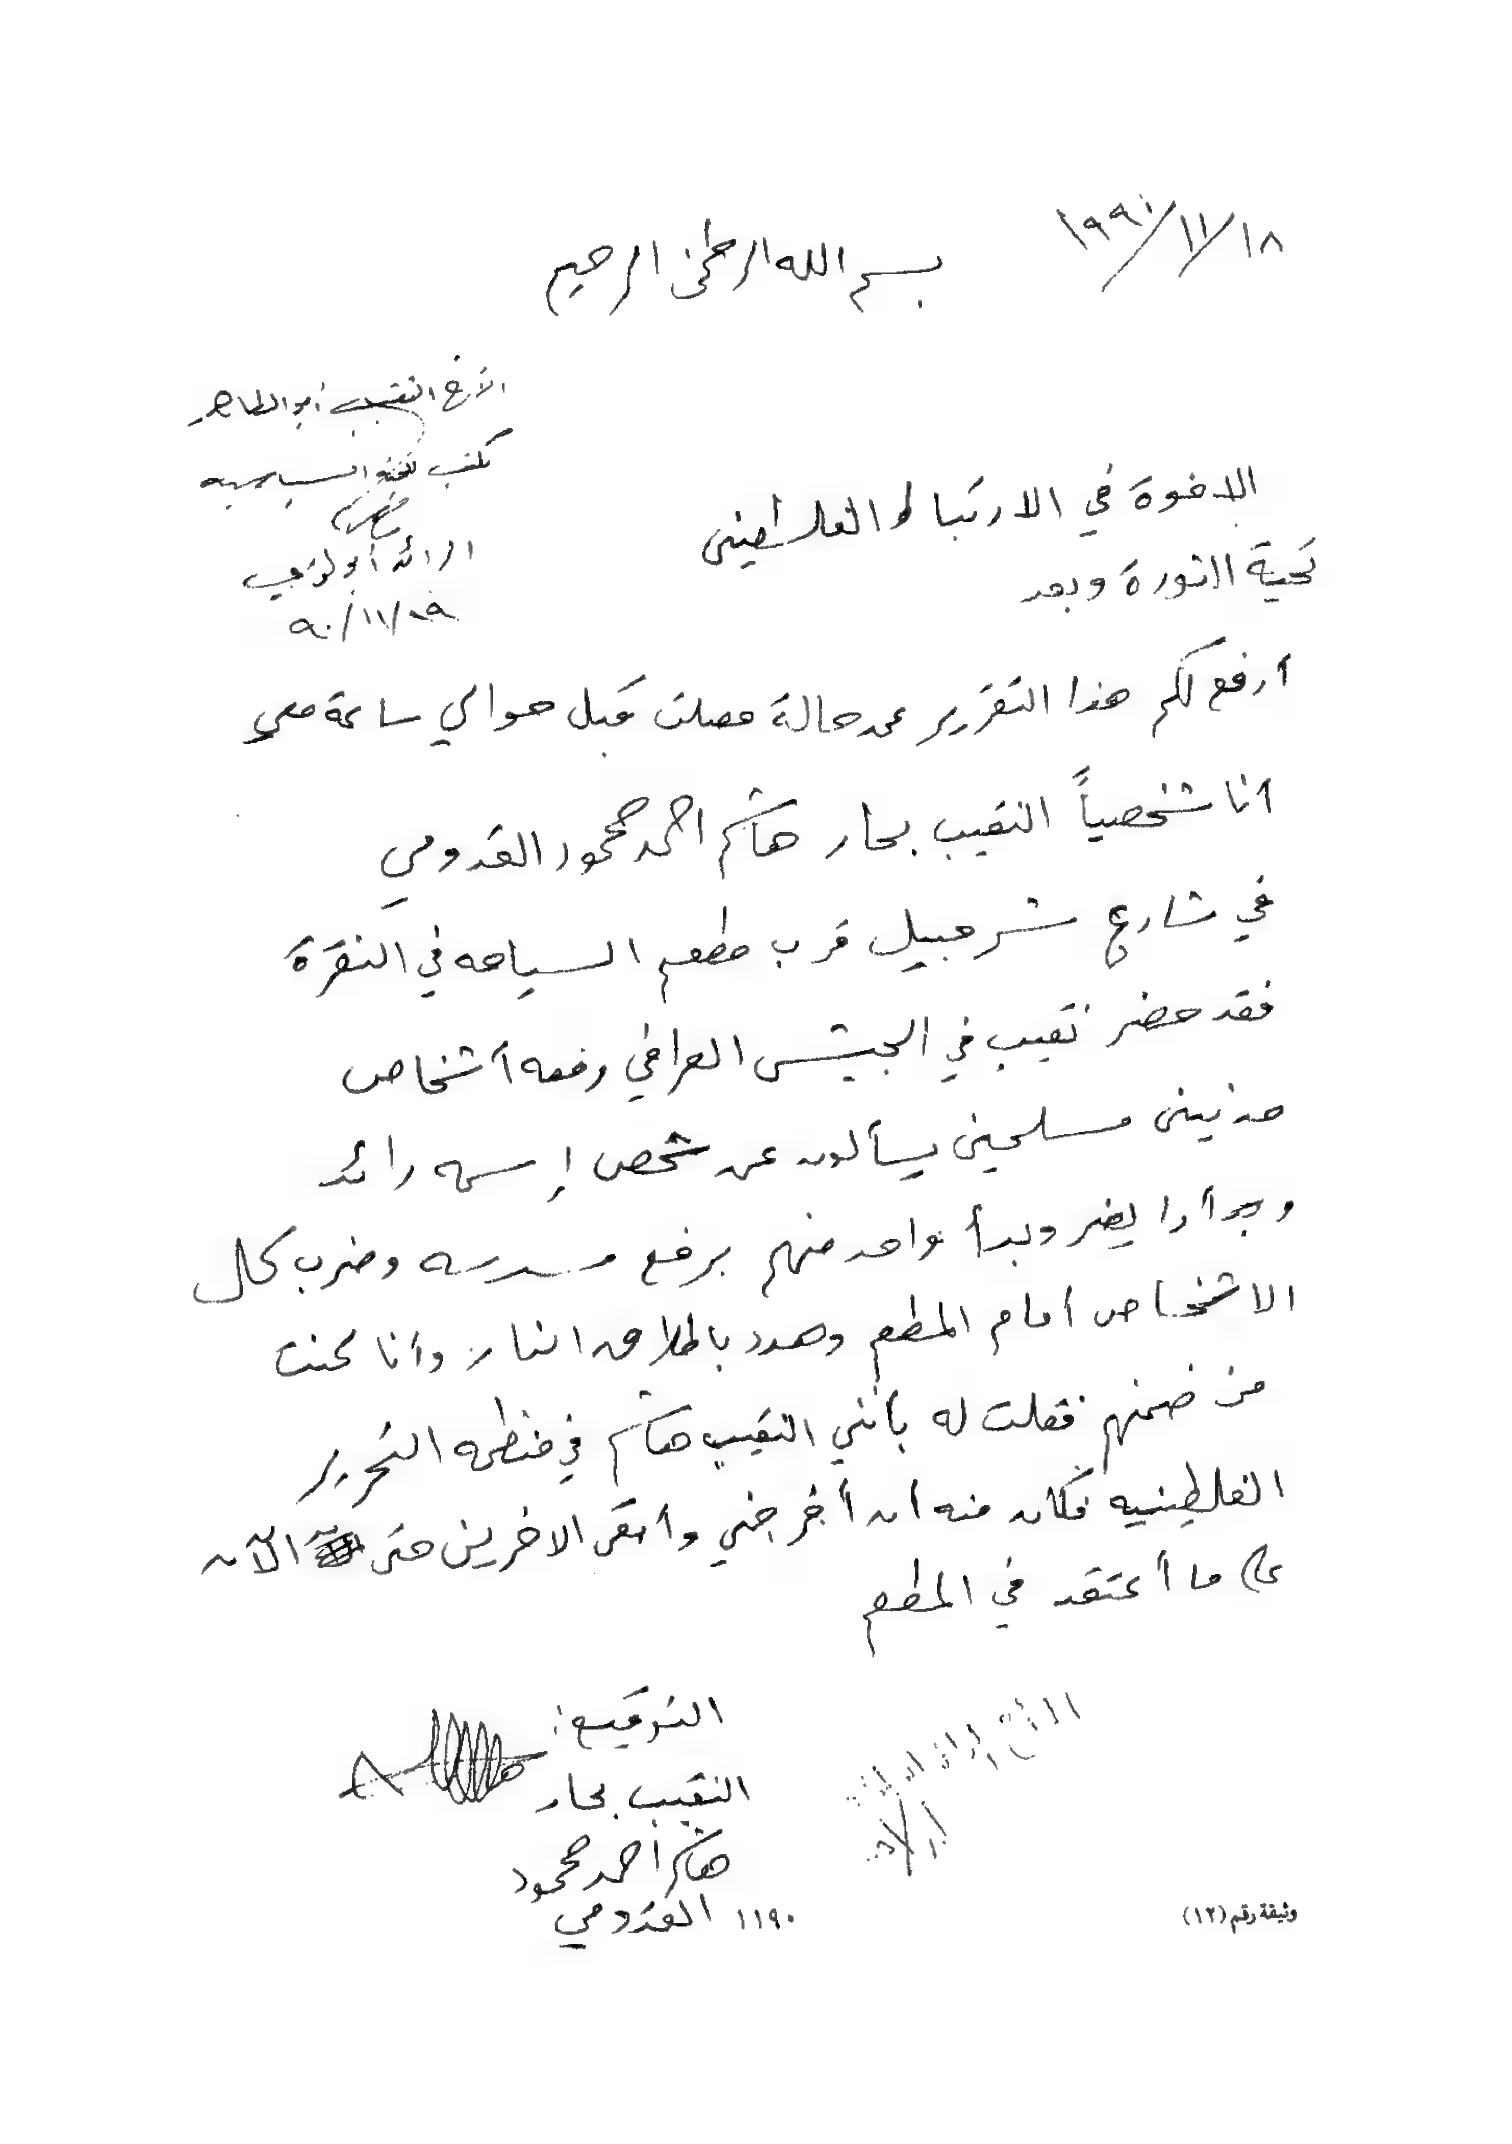 ١٩٩٠/١١/١٨
بسم الله الرحمن الرحيم
الأخ النقيب أبو الطاهر
مكتب
الرائد أبو
٩٠/١١/١٩
الاخوة في الارتباط الفلسطيني
تحية الثورة وبعد
أرفع لكم هذا التقرير عن حالة حصلت قبل حوالي ساعة معي
أنا شخصياً النقيب بحار هاشم احمد محمود القدومي
في شارع شرحبيل قرب مطعم السياحه في النقرة
فقد حضر نقيب في الجيش العراقي ومعه أشخاص
مدنيين مسلحين يسألون عن شخص إسمه رائد
وبدأ واحد منهم برفع مسدسه وضرب كل
الاشخاص أمام المطعم وهدد باطلاق النار وأنا كنت
من ضمنهم فقلت له بأنني النقيب هاشم في منظمه التحرير
الفلسطينيه فكان منه أن أخرجني وأبقى الاخرين حتى الآن
على ما أعتقد في المطعم
التوقيع:
النقيب بحار
هاشم أحمد محمود
القدومي ١١٩٠
الأخ الرائد
وثيقة رقم (١٢)